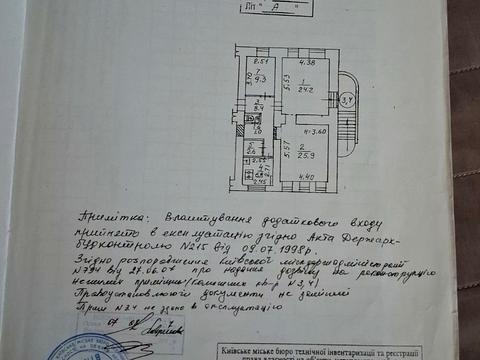 Літ "А"
2.51
4.38
7
9.3
3.70
5.53
1
24.2
3,4
3
8.4
h=3.60
5.57
2
25.9
4.40
2.45
Примітка: Влаштування додаткового входу
прийнято в експлуатацію згідно Акта Держарх-
будконтролю №215 від 09.07.1998р.
Згідно розпорядження Київської міськдержадміністрації
№794 від 27.06.07 про надання дозволу на реконструкцію
нежилих приміщень (колишніх кв-р №3,4)
Правоустановлюючі документи не замінені
Прим №24 не здано в експлуатацію
Київське міське бюро технічної інвентаризації та реєстрації